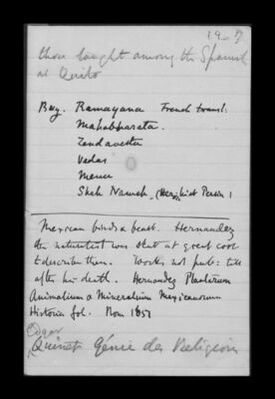 those taught among the Spanish
at Quito
Buy. Ramayana French transl.
Mahabharata.
Zendavesta
Vedas
Menu
Shah Nameh (Heroic hist Persia)
Mexican birds & beasts. Hernandez
the naturalist was sent at great cost
to describe them. Works not pub: till
after his death. Hernandez Plantarum
Animalium & Mineralium Mexicanorum
Historia fol. Rom 1651
Edgar
Quinet Génie des Religions